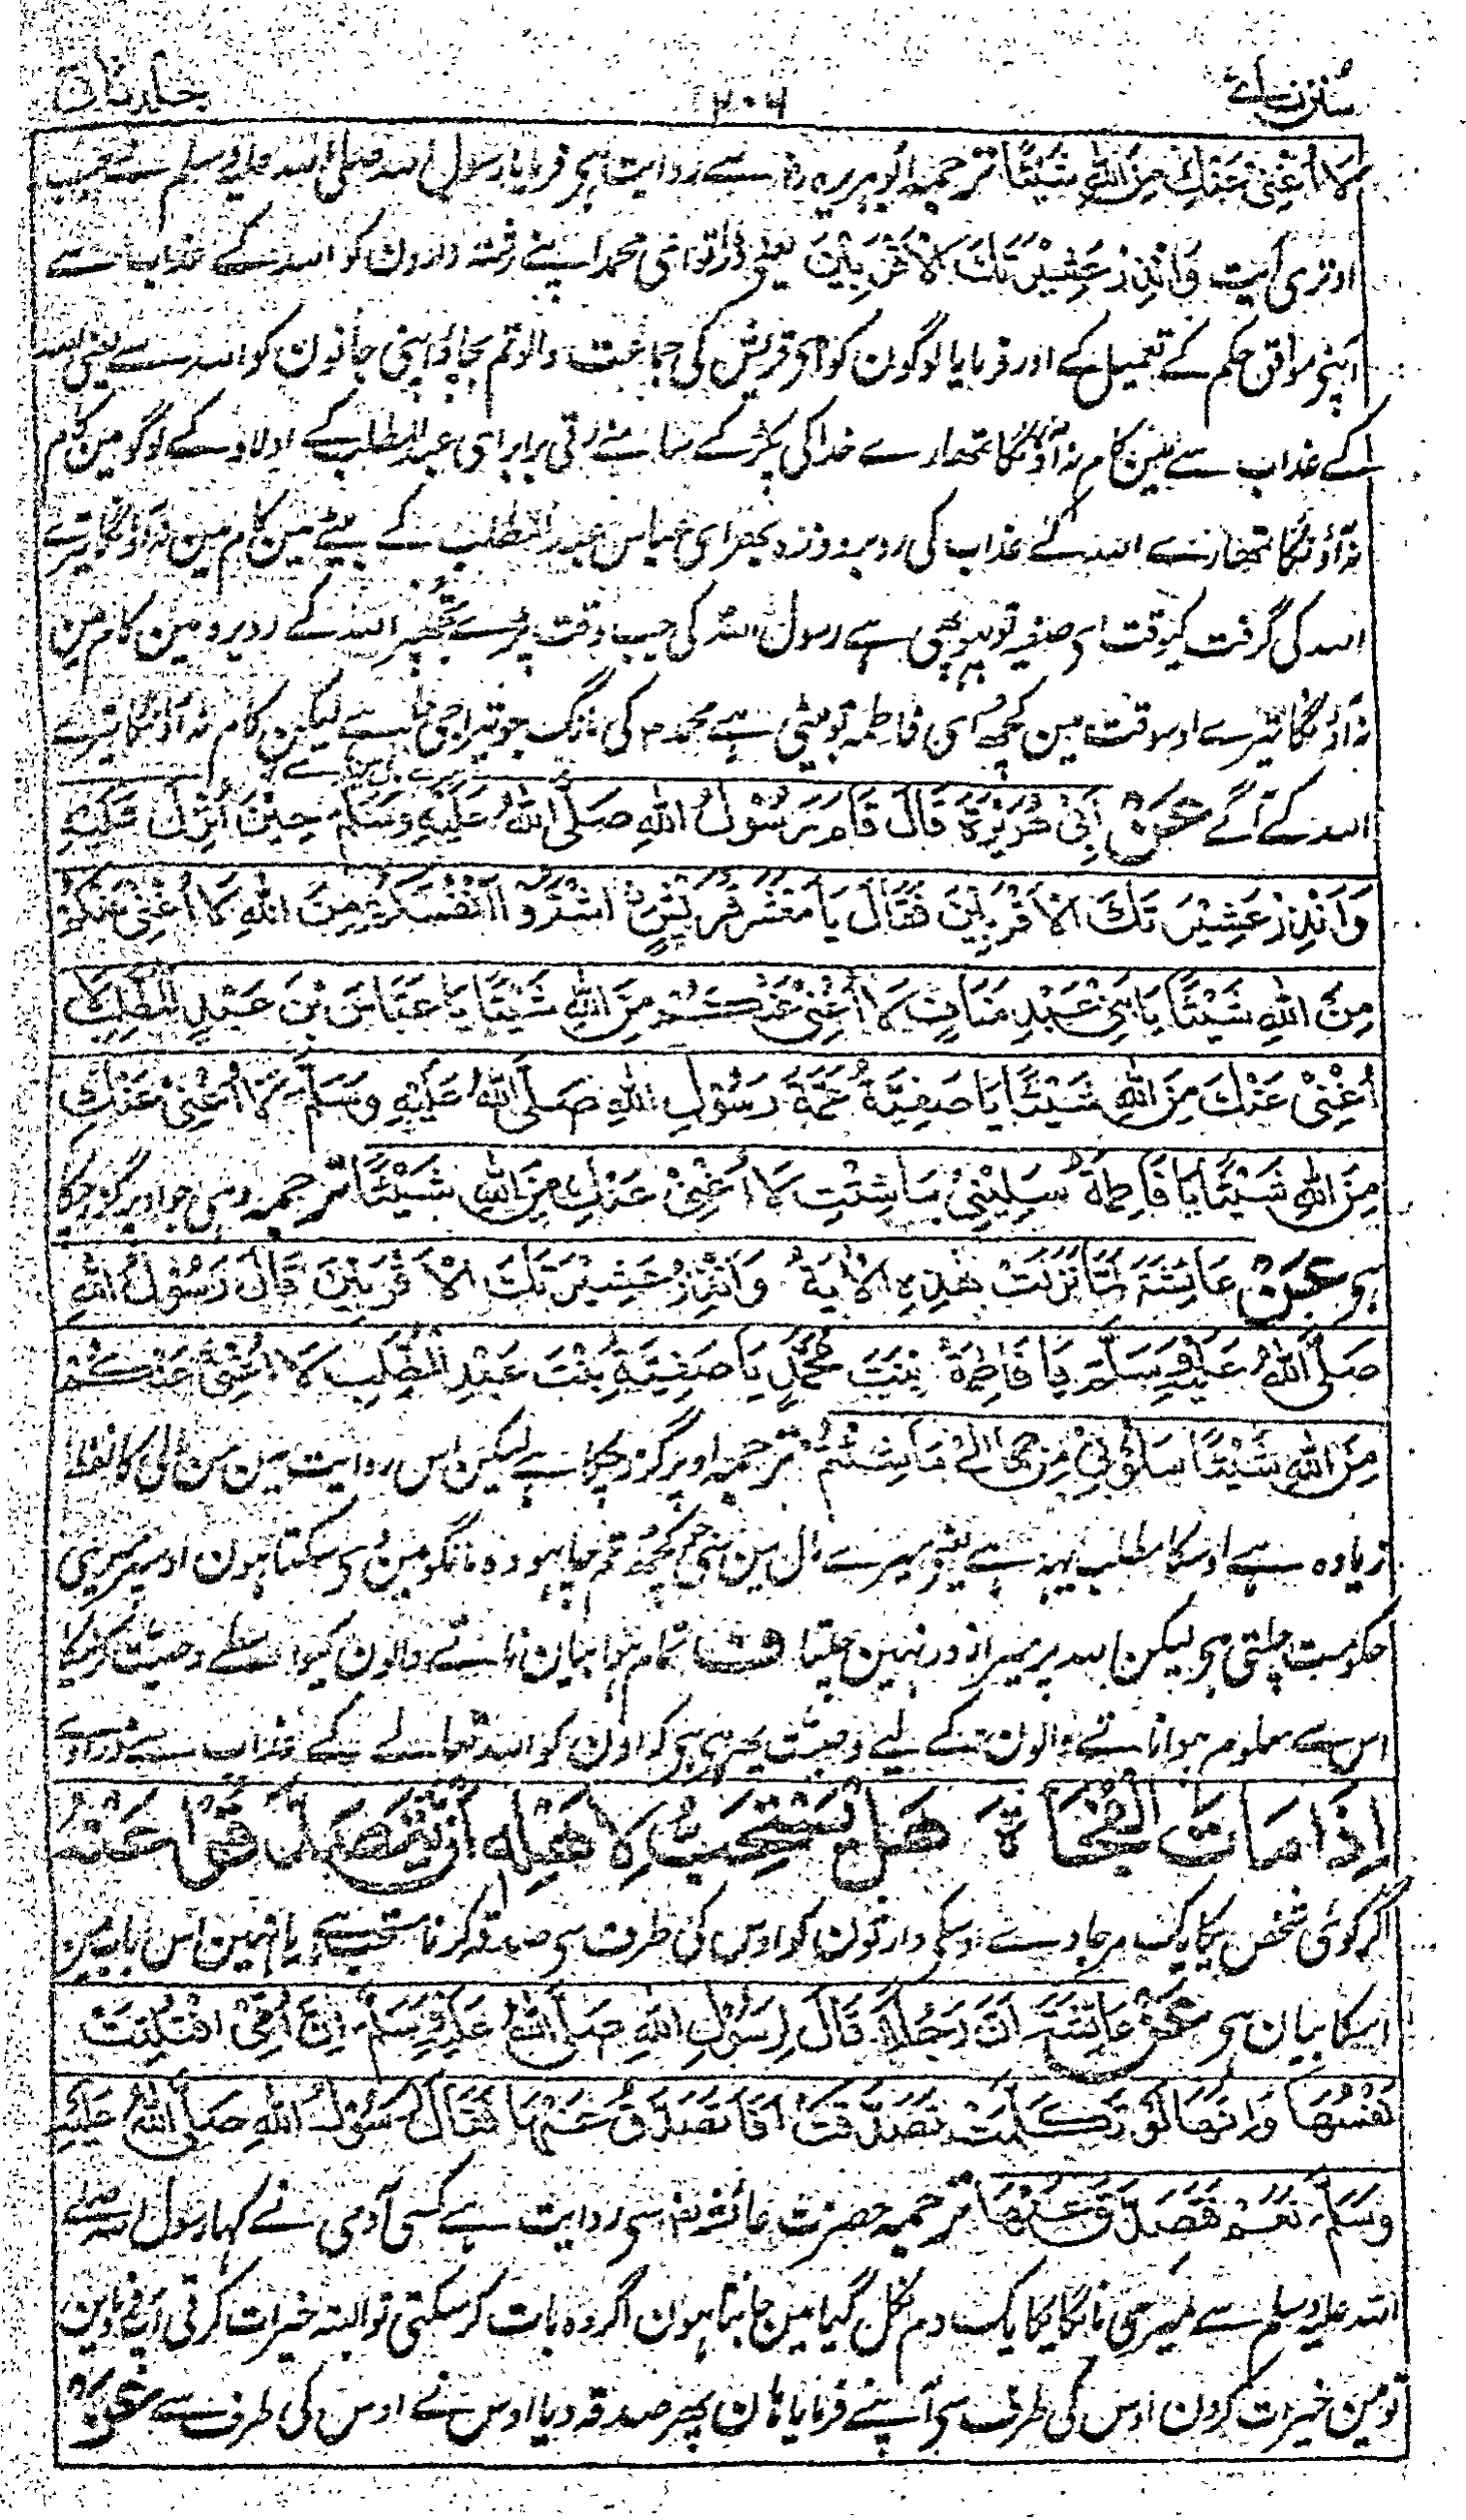 سنن نسائے ۲۰۶ جلد ثانی
لَا أُغْنِيْ عَنْكِ مِنَ اللهِ شَيْئًا ترجمہ ابو ہریرہ رض سے روایت ہی فرمایا رسول اللہ صلی اللہ علیہ وسلم نے جب
اوتری آیت وَاَنْذِرْ عَشِيْرَتَكَ الْاَقْرَبِيْنَ یعنی ڈرا تو ای محمد اپنے رشتہ والون کو اللہ کے عذاب سے
موافق حکم کے تعمیل کے اور فرمایا لوگون کو ای قریش کی جماعت والو تم بچاؤ اپنی جانون کو اللہ سے یعنی اللہ
کے عذاب سے مین کام نہ آؤنگا تمھارے خدا کی پکڑ کے سامنے رتی برابر ای عبد المطلب کے اولاد کے لوگو مین کام
نہ آؤنگا تمھارے اللہ کے عذاب کی روبرو ذرہ بھر ای عباس عبد المطلب کے بیٹے مین کام مین نہ آؤنگا تیرے
اللہ کی گرفت کیوقت ای صفیہ تو پھوپھی ہے رسول اللہ کی جب وقت پڑے تجھپر اللہ کے روبرو مین کام مین
نہ آؤنگا تیرے اوسوقت مین کچھ ای فاطمہ تو بیٹی ہے محمد م کی مانگ جو تیرا جی چاہے لیکن کام نہ آؤنگا تیرے
اللہ کے آگے عَنْ اَبِيْ هُرَيْرَةَ قَالَ قَامَ رَسُوْلُ اللهِ صَلَّى اللهُ عَلَيْهِ وَسَلَّمَ حِيْنَ اُنْزِلَ عَلَيْهِ
وَاَنْذِرْ عَشِيْرَتَكَ الْاَقْرَبِيْنَ فَقَالَ يَا مَعْشَرَ قُرَيْشٍ اشْتَرُوْا اَنْفُسَكُمْ مِنَ اللهِ لَا اُغْنِيْ عَنْكُمْ
مِنَ اللهِ شَيْئًا يَا بَنِيْ عَبْدِ مَنَافٍ لَا اُغْنِيْ عَنْكُمْ مِنَ اللهِ شَيْئًا يَا عَبَّاسَ بْنَ عَبْدِ الْمُطَّلِبِ لَا
اُغْنِيْ عَنْكَ مِنَ اللهِ شَيْئًا يَا صَفِيَّةُ عَمَّةَ رَسُوْلِ اللهِ صَلَّى اللهُ عَلَيْهِ وَسَلَّمَ لَا اُغْنِيْ عَنْكِ
مِنَ اللهِ شَيْئًا يَا فَاطِمَةُ سَلِيْنِيْ مَا شِئْتِ لَا اُغْنِيْ عَنْكِ مِنَ اللهِ شَيْئًا ترجمہ وہی جو اوپر گزر چکا
ہی عَنْ عَائِشَةَ لَمَّا نَزَلَتْ هٰذِهِ الْاٰيَةُ وَاَنْذِرْ عَشِيْرَتَكَ الْاَقْرَبِيْنَ قَالَ رَسُوْلُ اللهِ
صَلَّى اللهُ عَلَيْهِ وَسَلَّمَ يَا فَاطِمَةُ بِنْتَ مُحَمَّدٍ يَا صَفِيَّةُ بِنْتَ عَبْدِ الْمُطَّلِبِ لَا اُغْنِيْ عَنْكُمْ
مِنَ اللهِ شَيْئًا سَلُوْنِيْ مِنْ مَالِيْ مَا شِئْتُمْ ترجمہ اوپر گزر چکا ہے لیکن اس روایت مین من مالی کا لفظ
زیادہ ہے اوسکا مطلب یہہ ہے یعنی میرے مال مین سی جو کچھ تم چاہو وہ مانگو مین دی سکتا ہون اوسپر میری
حکومت چلتی ہی لیکن اللہ پر میرا زور نہین چلتا ف تمام ہوا بیان ناتے والون کیواسطے وصیت کرنیکا
اس سے معلوم ہوا ناتے والون کے لیے وصیت یہی ہی کہ اون کو اللہ تعالے کے عذاب سے ڈراوے
اِذَا مَاتَ الْفُجَاءَةَ هَلْ يُسْتَحَبُّ لِاَهْلِهِ اَنْ يَتَصَدَّقُوْا عَنْهُ
اگر کوئی شخص یکایک مرجاوے اوسکی وارثون کو اوس کی طرف سی صدقہ کرنا مستحب ہے یا نہین اس باب مین
اسکا بیان ہی عَنْ عَائِشَةَ اَنَّ رَجُلًا قَالَ لِرَسُوْلِ اللهِ صَلَّى اللهُ عَلَيْهِ وَسَلَّمَ اِنَّ اُمِّيْ افْتُلِتَتْ
نَفْسُهَا وَاِنَّهَا لَوْ تَكَلَّمَتْ تَصَدَّقَتْ اَفَاَتَصَدَّقُ عَنْهَا فَقَالَ رَسُوْلُ اللهِ صَلَّى اللهُ عَلَيْهِ
وَسَلَّمَ نَعَمْ فَتَصَدَّقَ عَنْهَا ترجمہ حضرت عائشہ رض سی روایت ہے کسی آدمی نے کہا رسول اللہ صلے
اللہ علیہ وسلم سے میری ما نگا یکایک دم نکل گیا مین جانتا ہون اگر وہ بات کر سکتی تو البتہ خیرات کرتی
تو مین خیرات کرون اوس کی طرف سی آپنے فرمایا ہان پھر صدقہ دیا اوس نے اوس کی طرف سے عَنْ